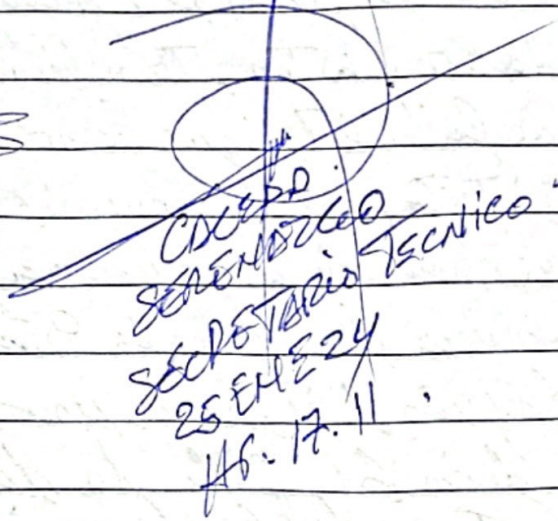 SERENAZGO
SECRETARIO TECNICO
25 ENE 24
H6: 17.11.